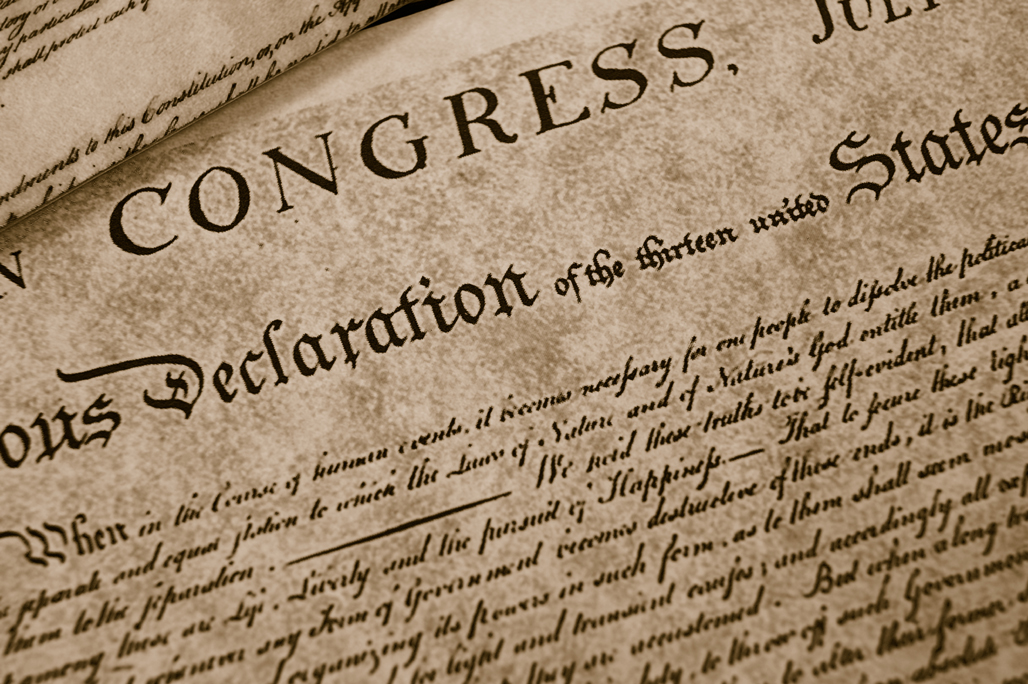 shall protect each of
Constitution, or, on the App
ndments to this Constitution
N CONGRESS, JULY
ous Declaration of the thirteen united States
When in the Course of human events, it becomes necessary for one people to dissolve the political
separate and equal station to which the Laws of Nature and of Nature's God entitle them, a
them to the separation. We hold these truths to be self-evident, that all
among these are Life, Liberty and the pursuit of Happiness.— That to secure these righ
whenever any Form of Government becomes destructive of these ends, it is the Ri
organizing its powers in such form, as to them shall seem mos
for light and transient causes; and accordingly all exp
they are accustomed. But when a long tra
duty, to throw off such Government
to alter their former
absolute